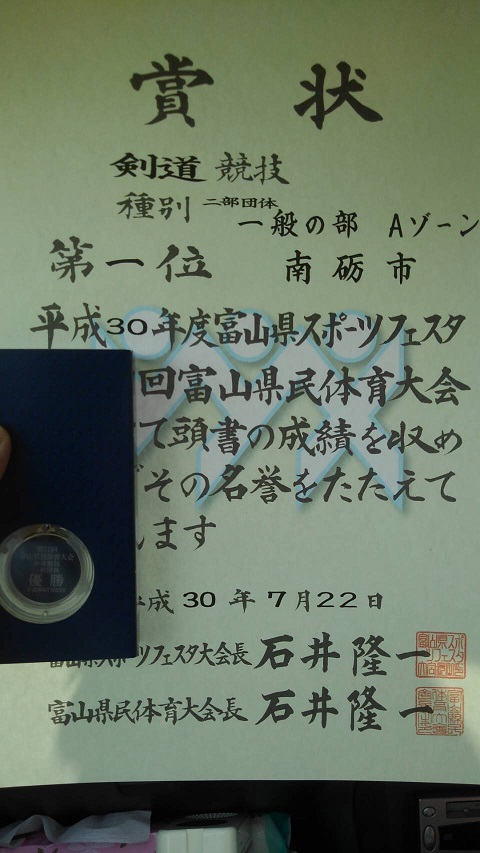 賞状
剣道 競技
種別 二部団体
一般の部 Aゾーン
第一位 南砺市
平成30年度富山県スポーツフェスタ
回富山県民体育大会
て頭書の成績を収め
その名誉をたたえて
ます
成30年7月22日
富山県スポーツフェスタ大会長 石井隆一
富山県民体育大会長 石井隆一
優勝